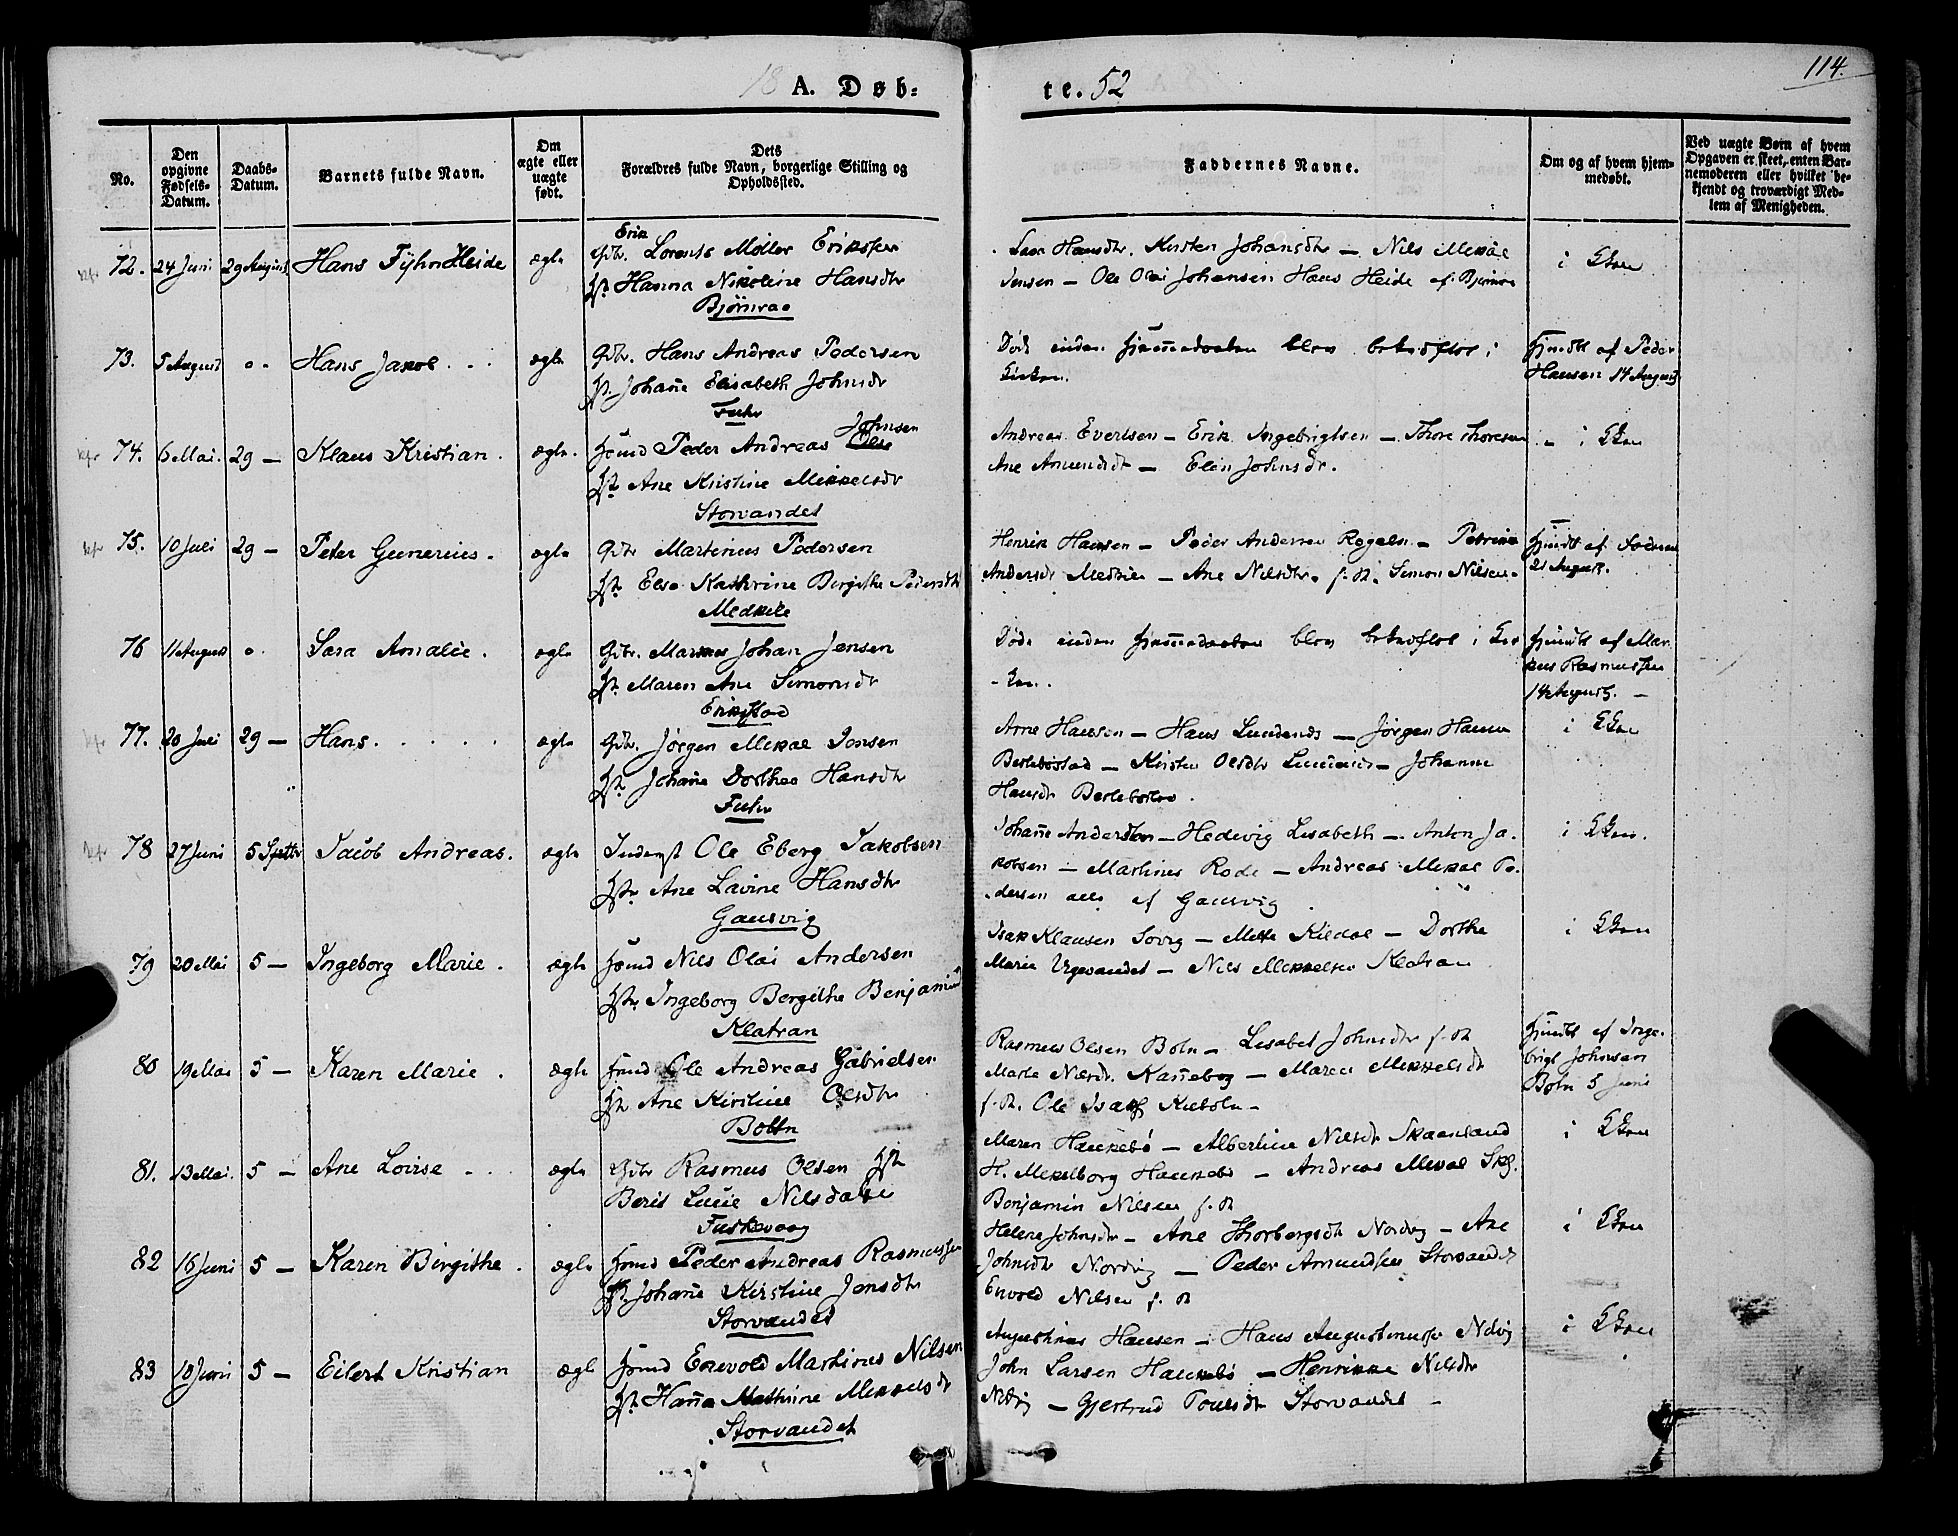 114.
18 A. Døb-
te. 52
No.
Den opgivne Fødsels-Datum.
Daabs-Datum.
Barnets fulde Navn.
Om ægte eller uægte født.
Dets
Forældres fulde Navn, borgerlige Stilling og
Opholdssted.
Faddernes Navne.
Om og af hvem hjem-
medøbt.
Ved uægte Børn af hvem
Opgaven er skeet, enten Bar-
nemoderen eller hvilket be-
kjendt og troværdigt Med-
lem af Menigheden.
72. 24 Juni 29 August Hans Fyhn Heide ægte
Erik
Gbr. Lorents Møller Eriksen
Hst. Hanna Nikoline Hansdtr
Bjørnraa
Hansdtr. Kirsten Johansdtr — Nils Mekal
Jensen — Ole Olai Johansen Hans Heide af Bjørnraa
i Kken
73. 5 August Hans Jakob ægte
Gbr. Hans Andreas Pedersen
Hst. Johane Elisabeth Johnsdr
Død inden hjemmedaaben blev bekræftet i
Kirken.
Hjmdt af Peder
Hansen 14 August
74. 6 Mai. 29 — Klaus Kristian. ægte.
Johnsen
Hsmd Peder Andreas
Hst. Ane Kristine Mikkelsdr
Storvandet
Andreas Evertsen — Erik Ingebrigtsen — Thore Thoresen
Ane Amundsdr — Elen Johnsdr.
i Kken
75. 10 Juli 29 — Peter Gunerius. ægte
Gbr Martinus Pedersen
Hst. Else Kathrine Bergithe Pedersdtr
Medkile
Henrik Hansen — Peder Andreas — Petrine
Andersdr Medkile — Ane Nilsdtr. f. st. Simon Nilsen.
Hjmdt af Faderen
21 August.
76 11 August Sara Amalie. ægte
Gbr. Markus Johan Jensen
Hst. Maren Ane Simonsdr
Erikstad
Døde inden hjemmedaaben blev bekræftet i Kir
-ken.
Hjmdt af Mar
kus Rasmussen
14 August. —
77. 20 Juli 29 — Hans. ægte
Gbr. Jørgen Mekal Jensen
Hst. Johane Dorthea Hansdtr
Arne Hansen — Hans — Jørgen Hansen
Berlebostad — Kirsten Olsdtr — Johanne
Hansdr
i Kken
78 27 Juni 5 Septbr Jacob Andreas. ægte
Inderst Ole Eberg Jakobsen
Hst. Ane Lavine Hansdtr
Gausvig
Johane Andersen — Hedevig Lisabeth — Anton Ja-
kobsen — Martines Rode — Andreas Mekal Pe-
dersen alle af Gausvig
i Kken.
79 20 Mai 5 — Ingeborg Marie. ægte
Hsmd Nils Olai Andersen
Hst. Ingeborg Bergithe Benjamins
Klatran
Isak Klausen Sovig — Mette Kildal — Dorthe
Marie — Nils Mekkelsen Klatran
i Kken
80 19 Mai 5 — Karen Marie. ægte
Hsmd Ole Andreas Gabrielsen
Hst Ane Kirstine Olsdtr
Botn
Rasmus Olsen Botn — Lisabet Johnsdtr f. st.
— Maren Mikkelsdt
f. st. Ole Isaks Kilbotn —
Hjmdt af Inge-
brigt Johnsen
Botn 5 Juni
81. 13 Mai. 5 — Ane Lovise ægte
Gbr Rasmus Olsen Hst
Berit Lucie Nilsdatter
Fuskevaag
Maren Haukebø — Albertine Nilsdr Skaanland
H. Mekelborg Haukebø — Andreas Mekal
Benjamin Nilsen f. st
i Kken
82 16 Juni 5 — Karen Birgithe. ægte
Hsmd Peder Andreas Rasmussen
Hst. Johane Kirstine Jensdtr
Storvandet
Helene Johnsdr — Ane Thorbergsdt Nordvig — Ane
Johnsdtr Nordvig — Peder Amundsen Storvandet
Enevold Nilsen f. st
i Kken
83 10 Juni 5 — Eilert Kristian ægte
Hsmd Enevold Martinus Nilsen
Hst. Hanna Mathrine Mekkelsdr
Storvandet
Augustinus Hansen — Hans Augustinussen Ndvig
John Larsen Haukebø — Henrikke Nilsdtr
Ndvig — Gjertrud Poulsdtr Storvandet
i Kken